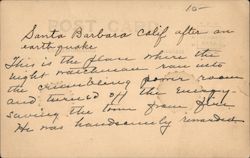 15-
POST CARD
Santa Barbara Calif after an
earthquake
This is the place where the
night watchman ran into
the crumbling power room
and turned off the energy-
saving the town from fire
He was handsomely rewarded